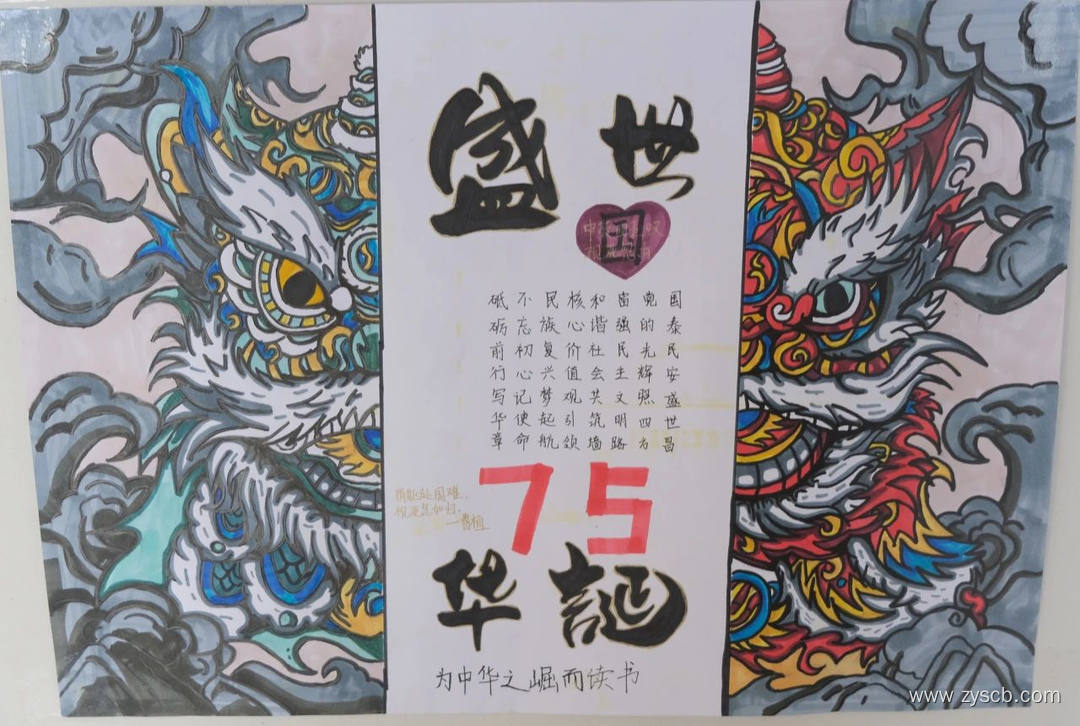 盛世
国
国泰民安盛世昌
党的光辉照四方
富强民主文明路
和谐社会共筑墙
核心价值观引领
民族复兴梦起航
不忘初心记使命
砥砺前行写华章
75
捐躯赴国难,
视死忽如归.
—曹植
华誕
为中华之崛而读书
www.zyscb.com